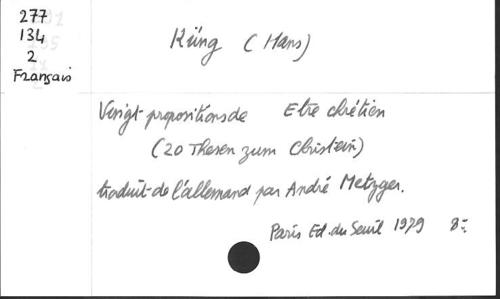 277
134
2
Français
Küng (Hans)
Vingt propositions de Etre chrétien
(20 Thesen zum Christein)
traduit de l'allemand par André Metzger.
Paris Ed. du Seuil 1979 8°